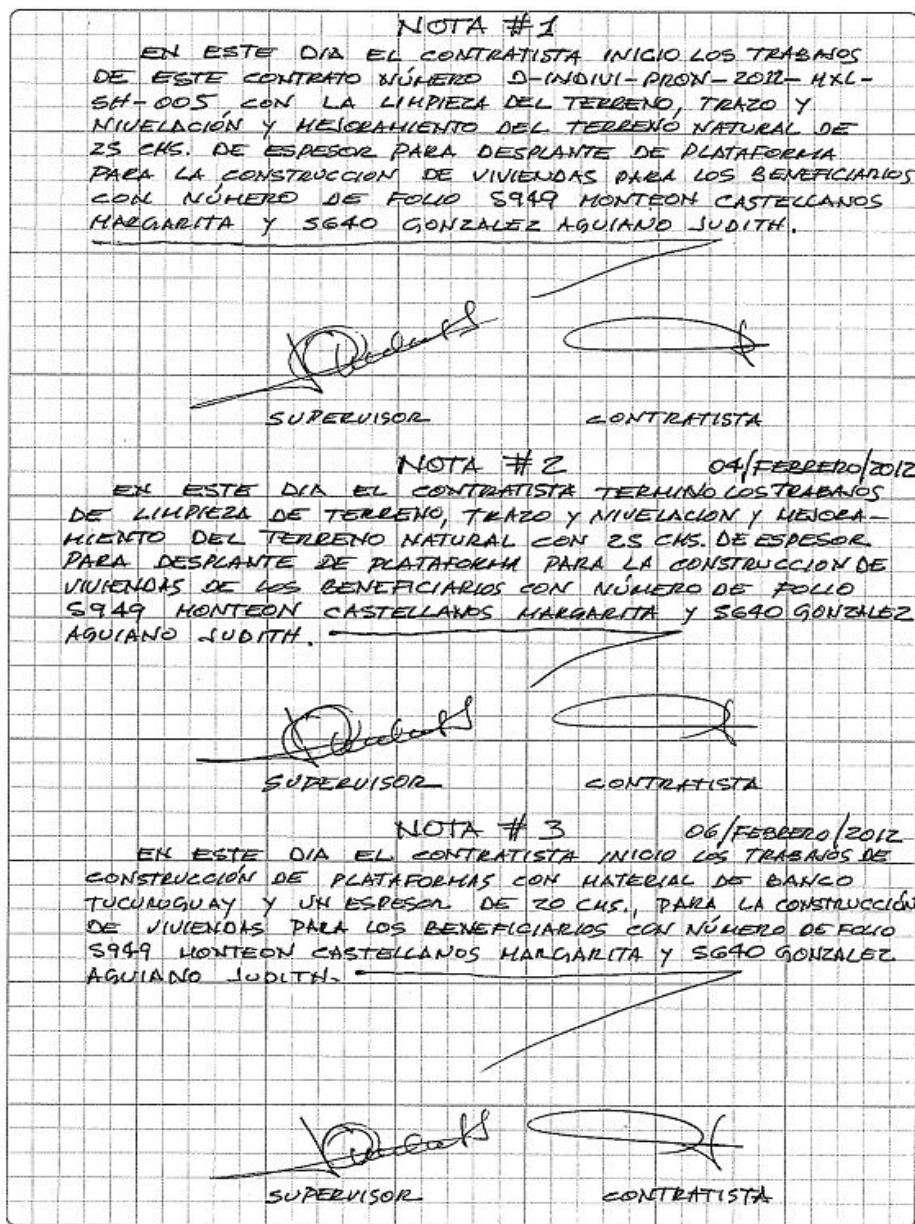 NOTA #1
EN ESTE DIA EL CONTRATISTA INICIO LOS TRABAJOS
DE ESTE CONTRATO NÚMERO D-INDIVI-PRON-2012-MXL-
SH-005 CON LA LIMPIEZA DEL TERRENO, TRAZO Y
NIVELACIÓN Y MEJORAMIENTO DEL TERRENO NATURAL DE
25 CMS. DE ESPESOR PARA DESPLANTE DE PLATAFORMA
PARA LA CONSTRUCCION DE VIVIENDAS PARA LOS BENEFICIARIOS
CON NÚMERO DE FOLIO 5949 MONTEON CASTELLANOS
MARGARITA Y 5640 GONZALEZ AGUIANO JUDITH.
SUPERVISOR CONTRATISTA
NOTA #2 04/FEBRERO/2012
EN ESTE DIA EL CONTRATISTA TERMINO LOS TRABAJOS
DE LIMPIEZA DE TERRENO, TRAZO Y NIVELACION Y MEJORA-
MIENTO DEL TERRENO NATURAL CON 25 CMS. DE ESPESOR
PARA DESPLANTE DE PLATAFORMA PARA LA CONSTRUCCION DE
VIVIENDAS DE LOS BENEFICIARIOS CON NÚMERO DE FOLIO
5949 MONTEON CASTELLANOS MARGARITA Y 5640 GONZALEZ
AGUIANO JUDITH.
SUPERVISOR CONTRATISTA
NOTA #3 06/FEBRERO/2012
EN ESTE DIA EL CONTRATISTA INICIO LOS TRABAJOS DE
CONSTRUCCIÓN DE PLATAFORMAS CON MATERIAL DE BANCO
Y UN ESPESOR DE 20 CMS., PARA LA CONSTRUCCIÓN
DE VIVIENDAS PARA LOS BENEFICIARIOS CON NÚMERO DE FOLIO
5949 MONTEON CASTELLANOS MARGARITA Y 5640 GONZALEZ
AGUIANO JUDITH.
SUPERVISOR CONTRATISTA